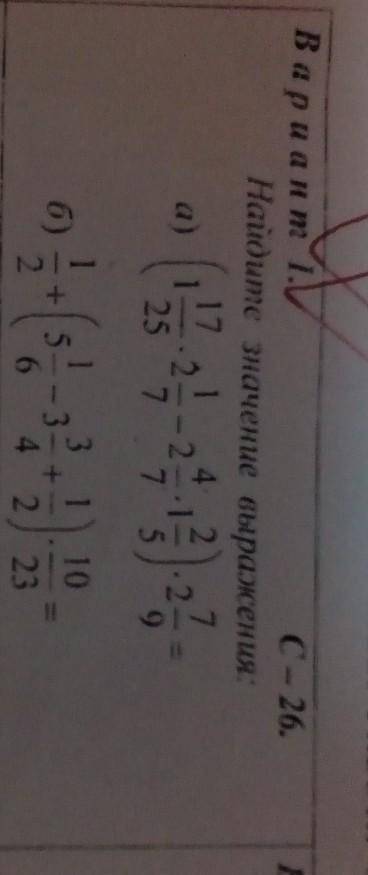 Вариант 1. С – 26.
Найдите значение выражения:
а) (1 17/25 · 2 1/7 − 2 4/7 · 1 2/5) · 2 7/9 =
б) 1/2 + (5 1/6 − 3 3/4 + 1/2) · 10/23 =